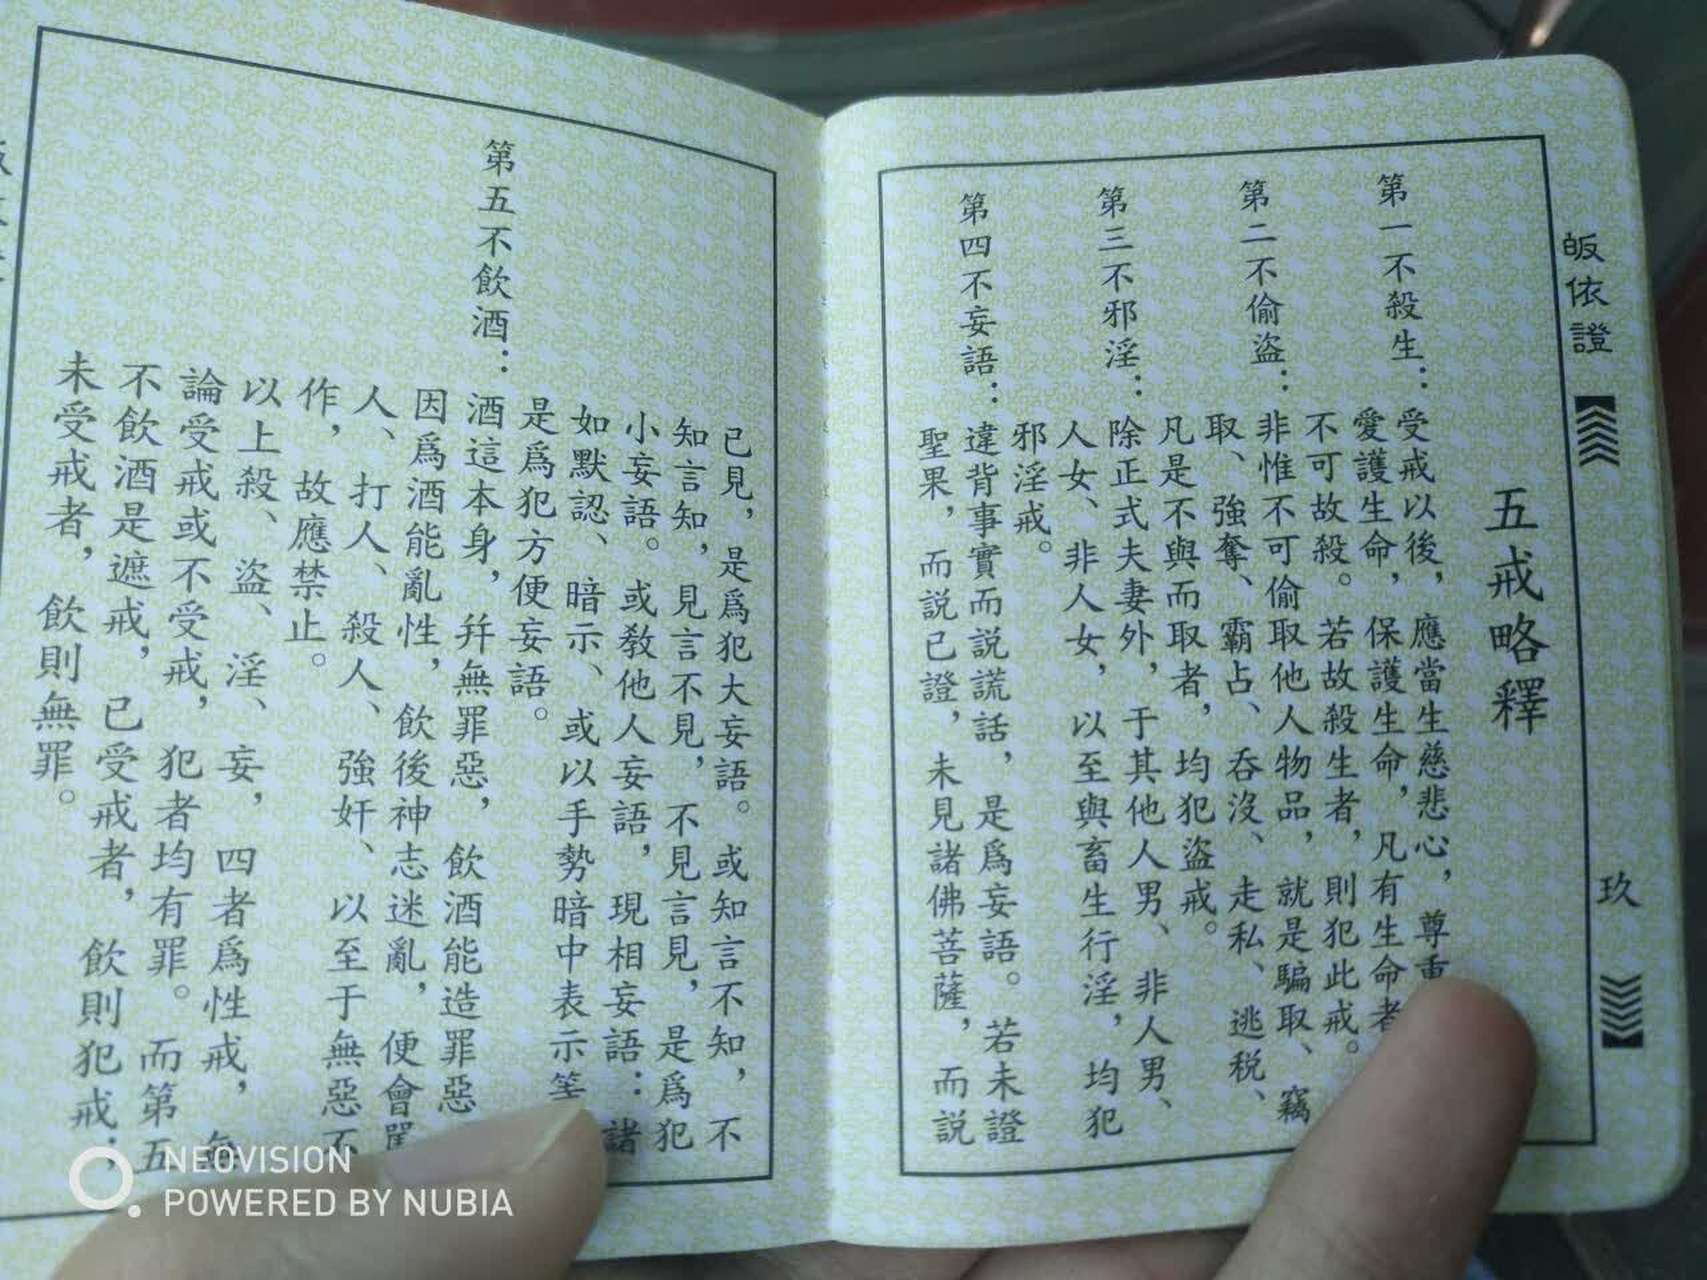 皈依證
玖
五戒略釋
第一不殺生：受戒以後，應當生慈悲心，尊重
愛護生命，保護生命，凡有生命者
不可故殺。若故殺生者，則犯此戒。
第二不偷盜：非惟不可偷取他人物品，就是騙取、竊
取、強奪、霸占、吞沒、走私、逃税、
凡是不與而取者，均犯盜戒。
第三不邪淫：除正式夫妻外，于其他人男、非人男、
人女、非人女，以至與畜生行淫，均犯
邪淫戒。
第四不妄語：違背事實而説謊話，是爲妄語。若未證
聖果，而説已證，未見諸佛菩薩，而説
已見，是爲犯大妄語。或知言不知，不
知言知，見言不見，不見言見，是爲犯
小妄語。或教他人妄語，現相妄語：諸
如默認、暗示、或以手勢暗中表示等
是爲犯方便妄語。
第五不飲酒：酒這本身，并無罪惡，飲酒能造罪惡
因爲酒能亂性，飲後神志迷亂，便會駡
人、打人、殺人、強奸、以至于無惡不
作，故應禁止。
以上殺、盜、淫、妄，四者爲性戒，無
論受戒或不受戒，犯者均有罪。而第五
不飲酒是遮戒，已受戒者，飲則犯戒；
未受戒者，飲則無罪。
NEOVISION
POWERED BY NUBIA